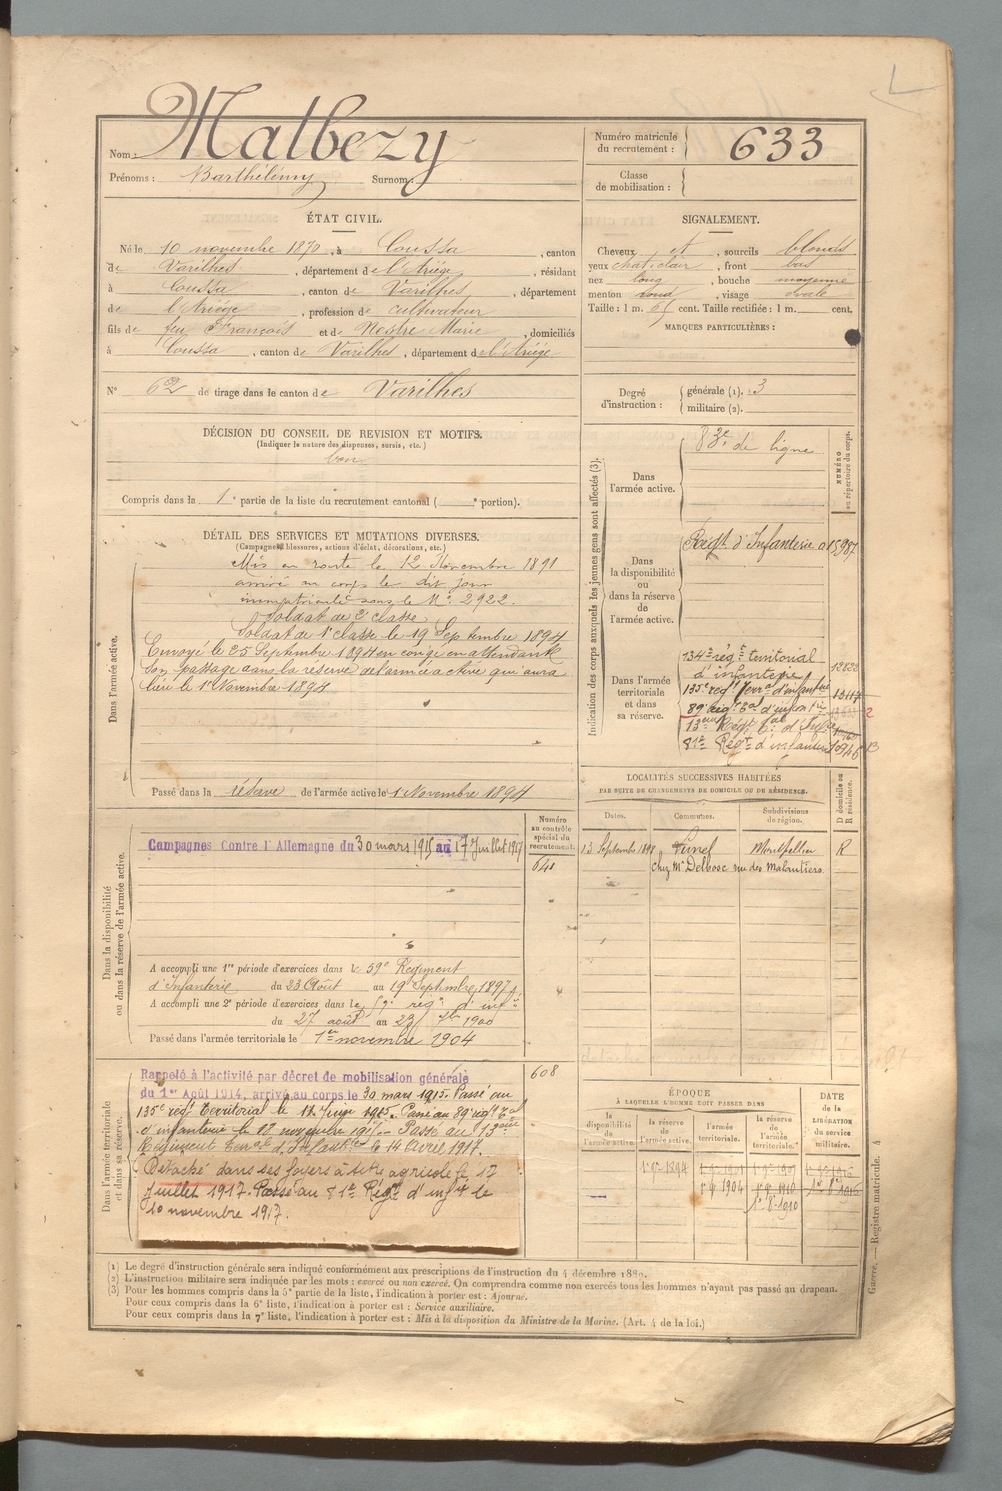 Nom : Malbezy
Prénoms : Barthélémy Surnom :
Numéro matricule du recrutement : 633
Classe de mobilisation :
ÉTAT CIVIL.
Né le 10 novembre 1870, à Coussa, canton
de Varilhes, département de l'Ariége, résidant
à Coussa, canton de Varilhes, département
de l'Ariége, profession de cultivateur
fils de feu François et de Nestre Marie, domiciliés
à Coussa, canton de Varilhes, département de l'Ariége
N° 62 de tirage dans le canton de Varilhes
SIGNALEMENT.
Cheveux et, sourcils blonds
yeux chat. clair, front bas
nez long, bouche moyenne
menton rond, visage ovale
Taille : 1 m. cent. Taille rectifiée : 1 m. cent.
MARQUES PARTICULIÈRES :
Degré d'instruction : générale (1). 3
militaire (2).
DÉCISION DU CONSEIL DE REVISION ET MOTIFS.
(Indiquer la nature des dispenses, sursis, etc.)
bon
Compris dans la 1e partie de la liste du recrutement cantonal ( e portion).
DÉTAIL DES SERVICES ET MUTATIONS DIVERSES.
(Campagnes, blessures, actions d'éclat, décorations, etc.)
Dans l'armée active.
Mis en route le 12 Novembre 1891
arrivé au corps le dit jour
immatriculé sous le N° 2922.
Soldat de 2e classe
Soldat de 1e classe le 19 Septembre 1894
Envoyé le 25 Septembre 1894 en congé en attendant
son passage dans la réserve de l'armée active qui aura
lieu le 1er Novembre 1894
Passé dans la réserve de l'armée active le 1er Novembre 1894
Indication des corps auxquels les jeunes gens sont affectés (3).
NUMÉRO au répertoire du corps.
Dans l'armée active.
83e de ligne
Dans la disponibilité ou dans la réserve de l'armée active.
Régt d'Infanterie 015987
Dans l'armée territoriale et dans sa réserve.
134e rég t territorial
d'infanterie 12622
135e rég t Terr al d'infanterie 13117
89e régt Tal d'infant ie 2
13eme Régt T al d'Infie
81e Régt d'infanterie 10946 B
LOCALITÉS SUCCESSIVES HABITÉES
PAR SUITE DE CHANGEMENTS DE DOMICILE OU DE RÉSIDENCE.
Dates. Communes. Subdivisions de région. D domicile ou R résidence.
13 Septembre 1898 Lunel Montpellier R
chez Mr Delbosc rue des Malautiers.
Dans la disponibilité ou dans la réserve de l'armée active.
Numéro au contrôle spécial du recrutement.
Campagnes Contre l'Allemagne du 30 mars 1915 au 17 Juillet 1917
640
A accompli une 1re période d'exercices dans le 59e Régiment
d'Infanterie du 23 Août au 19 Septembre 1897
A accompli une 2e période d'exercices dans le 59e régt d'inf ie
du 27 août au 23 7bre 1900
Passé dans l'armée territoriale le 1er novembre 1904
Dans l'armée territoriale et dans sa réserve.
Rappelé à l'activité par décret de mobilisation générale
du 1er Août 1914, arrivé au corps le 30 mars 1915. Passé au
135e régt Territorial le 11 Juin 1915. Passé au 89e régt Tal
d'infanterie le 12 novembre 1915. Passé au 13eme
Régiment Terr al d'Infanterie le 14 Avril 1917.
Détaché dans ses foyers à titre agricole le 17
juillet 1917. Passé au 81e Régt d'inf ie le
10 novembre 1917.
608
ÉPOQUE
À LAQUELLE L'HOMME DOIT PASSER DANS
la disponibilité de l'armée active. la réserve de l'armée active. l'armée territoriale. la réserve de l'armée territoriale.
DATE de la LIBÉRATION du service militaire.
1er 9bre 1894
1er 9bre 1904
1er 9bre 1910
1er 8bre 1910
1er 9bre 1916
(1) Le degré d'instruction générale sera indiqué conformément aux prescriptions de l'instruction du 4 décembre 1889.
(2) L'instruction militaire sera indiquée par les mots : exercé ou non exercé. On comprendra comme non exercés tous les hommes n'ayant pas passé au drapeau.
(3) Pour les hommes compris dans la 5e partie de la liste, l'indication à porter est : Ajourné.
Pour ceux compris dans la 6e liste, l'indication à porter est : Service auxiliaire.
Pour ceux compris dans la 7e liste, l'indication à porter est : Mis à la disposition du Ministre de la Marine. (Art. 4 de la loi.)
Guerre. — Registre matricule. 4